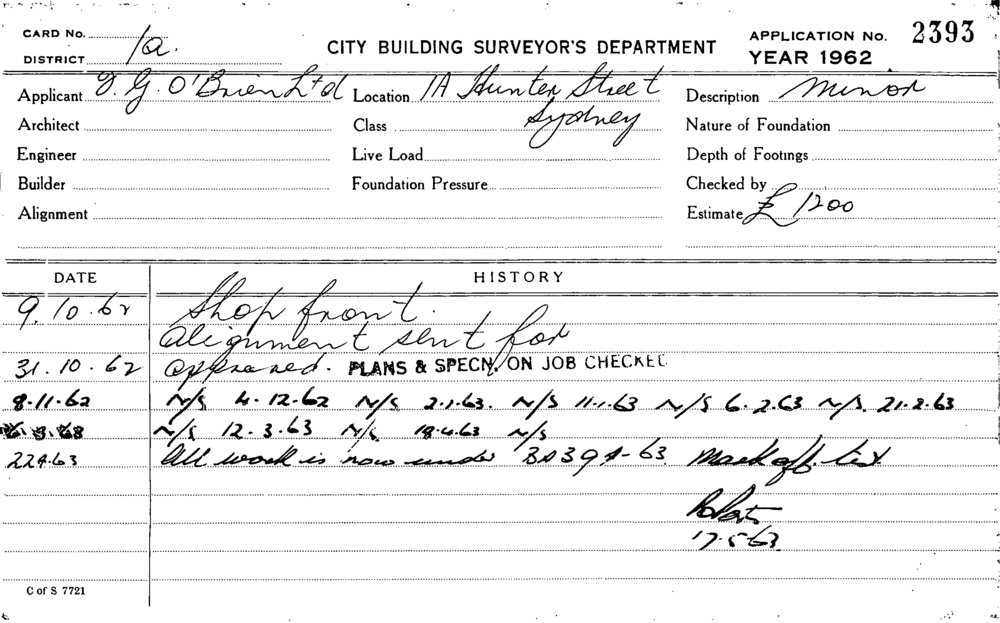 CARD No.
DISTRICT 1a.
CITY BUILDING SURVEYOR'S DEPARTMENT
APPLICATION No. 2393
YEAR 1962
Applicant G. O'Brien Ltd Location 1A Hunter Street Description Minor
Architect Class Sydney Nature of Foundation
Engineer Live Load Depth of Footings
Builder Foundation Pressure Checked by
Alignment Estimate £ 1200
DATE HISTORY
9.10.62 Shop front.
Alignment sent for
31.10.62 Approved. PLANS & SPECN. ON JOB CHECKED
8.11.62 N/S 4.12.62 N/S 2.1.63. N/S 11.1.63 N/S 6.2.63 N/S. 21.2.63
N/S 12.3.63 N/S. 18.4.63 N/S
22.4.63 All work is now under BA 394-63. Mark off list
17.5.63
C of S 7721